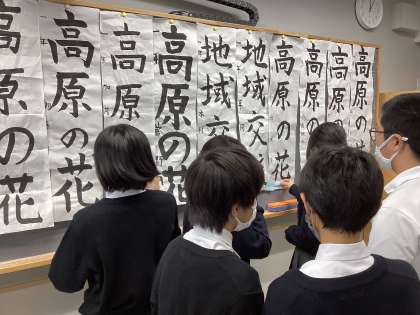 高原の花
高原の
高原
高原の花
地域交
地域交
高原の花
高原
高原の花
高原の花